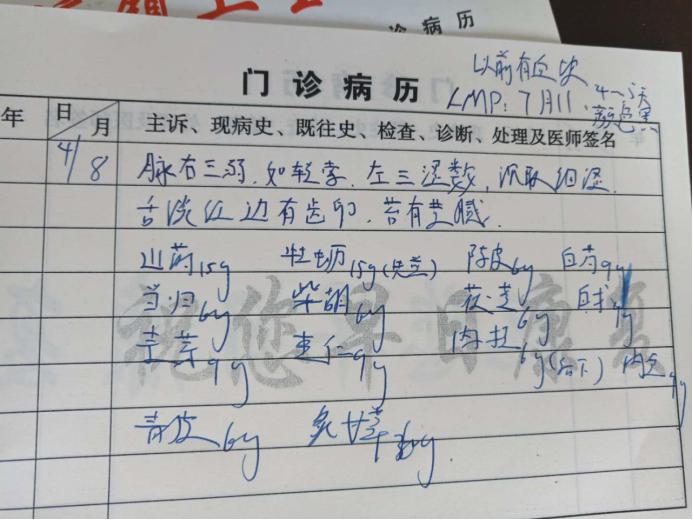 病历
以前有血块
门诊病历
LMP:7月11. 4~5天
颜色黑
年 日/月 主诉、现病史、既往史、检查、诊断、处理及医师签名
4/8 脉右三弱.如轻 左三涩数,沉取细涩.
舌淡红边有齿印.苔有 腻.
山药15g 牡蛎15g(先煎) 陈皮6g 白芍9g
当归6g 柴胡6g 茯 6g 白术9g
祝您早日康复
9g 枣仁9g 肉桂6g(后下) 9g
青皮6g 炙甘草6g